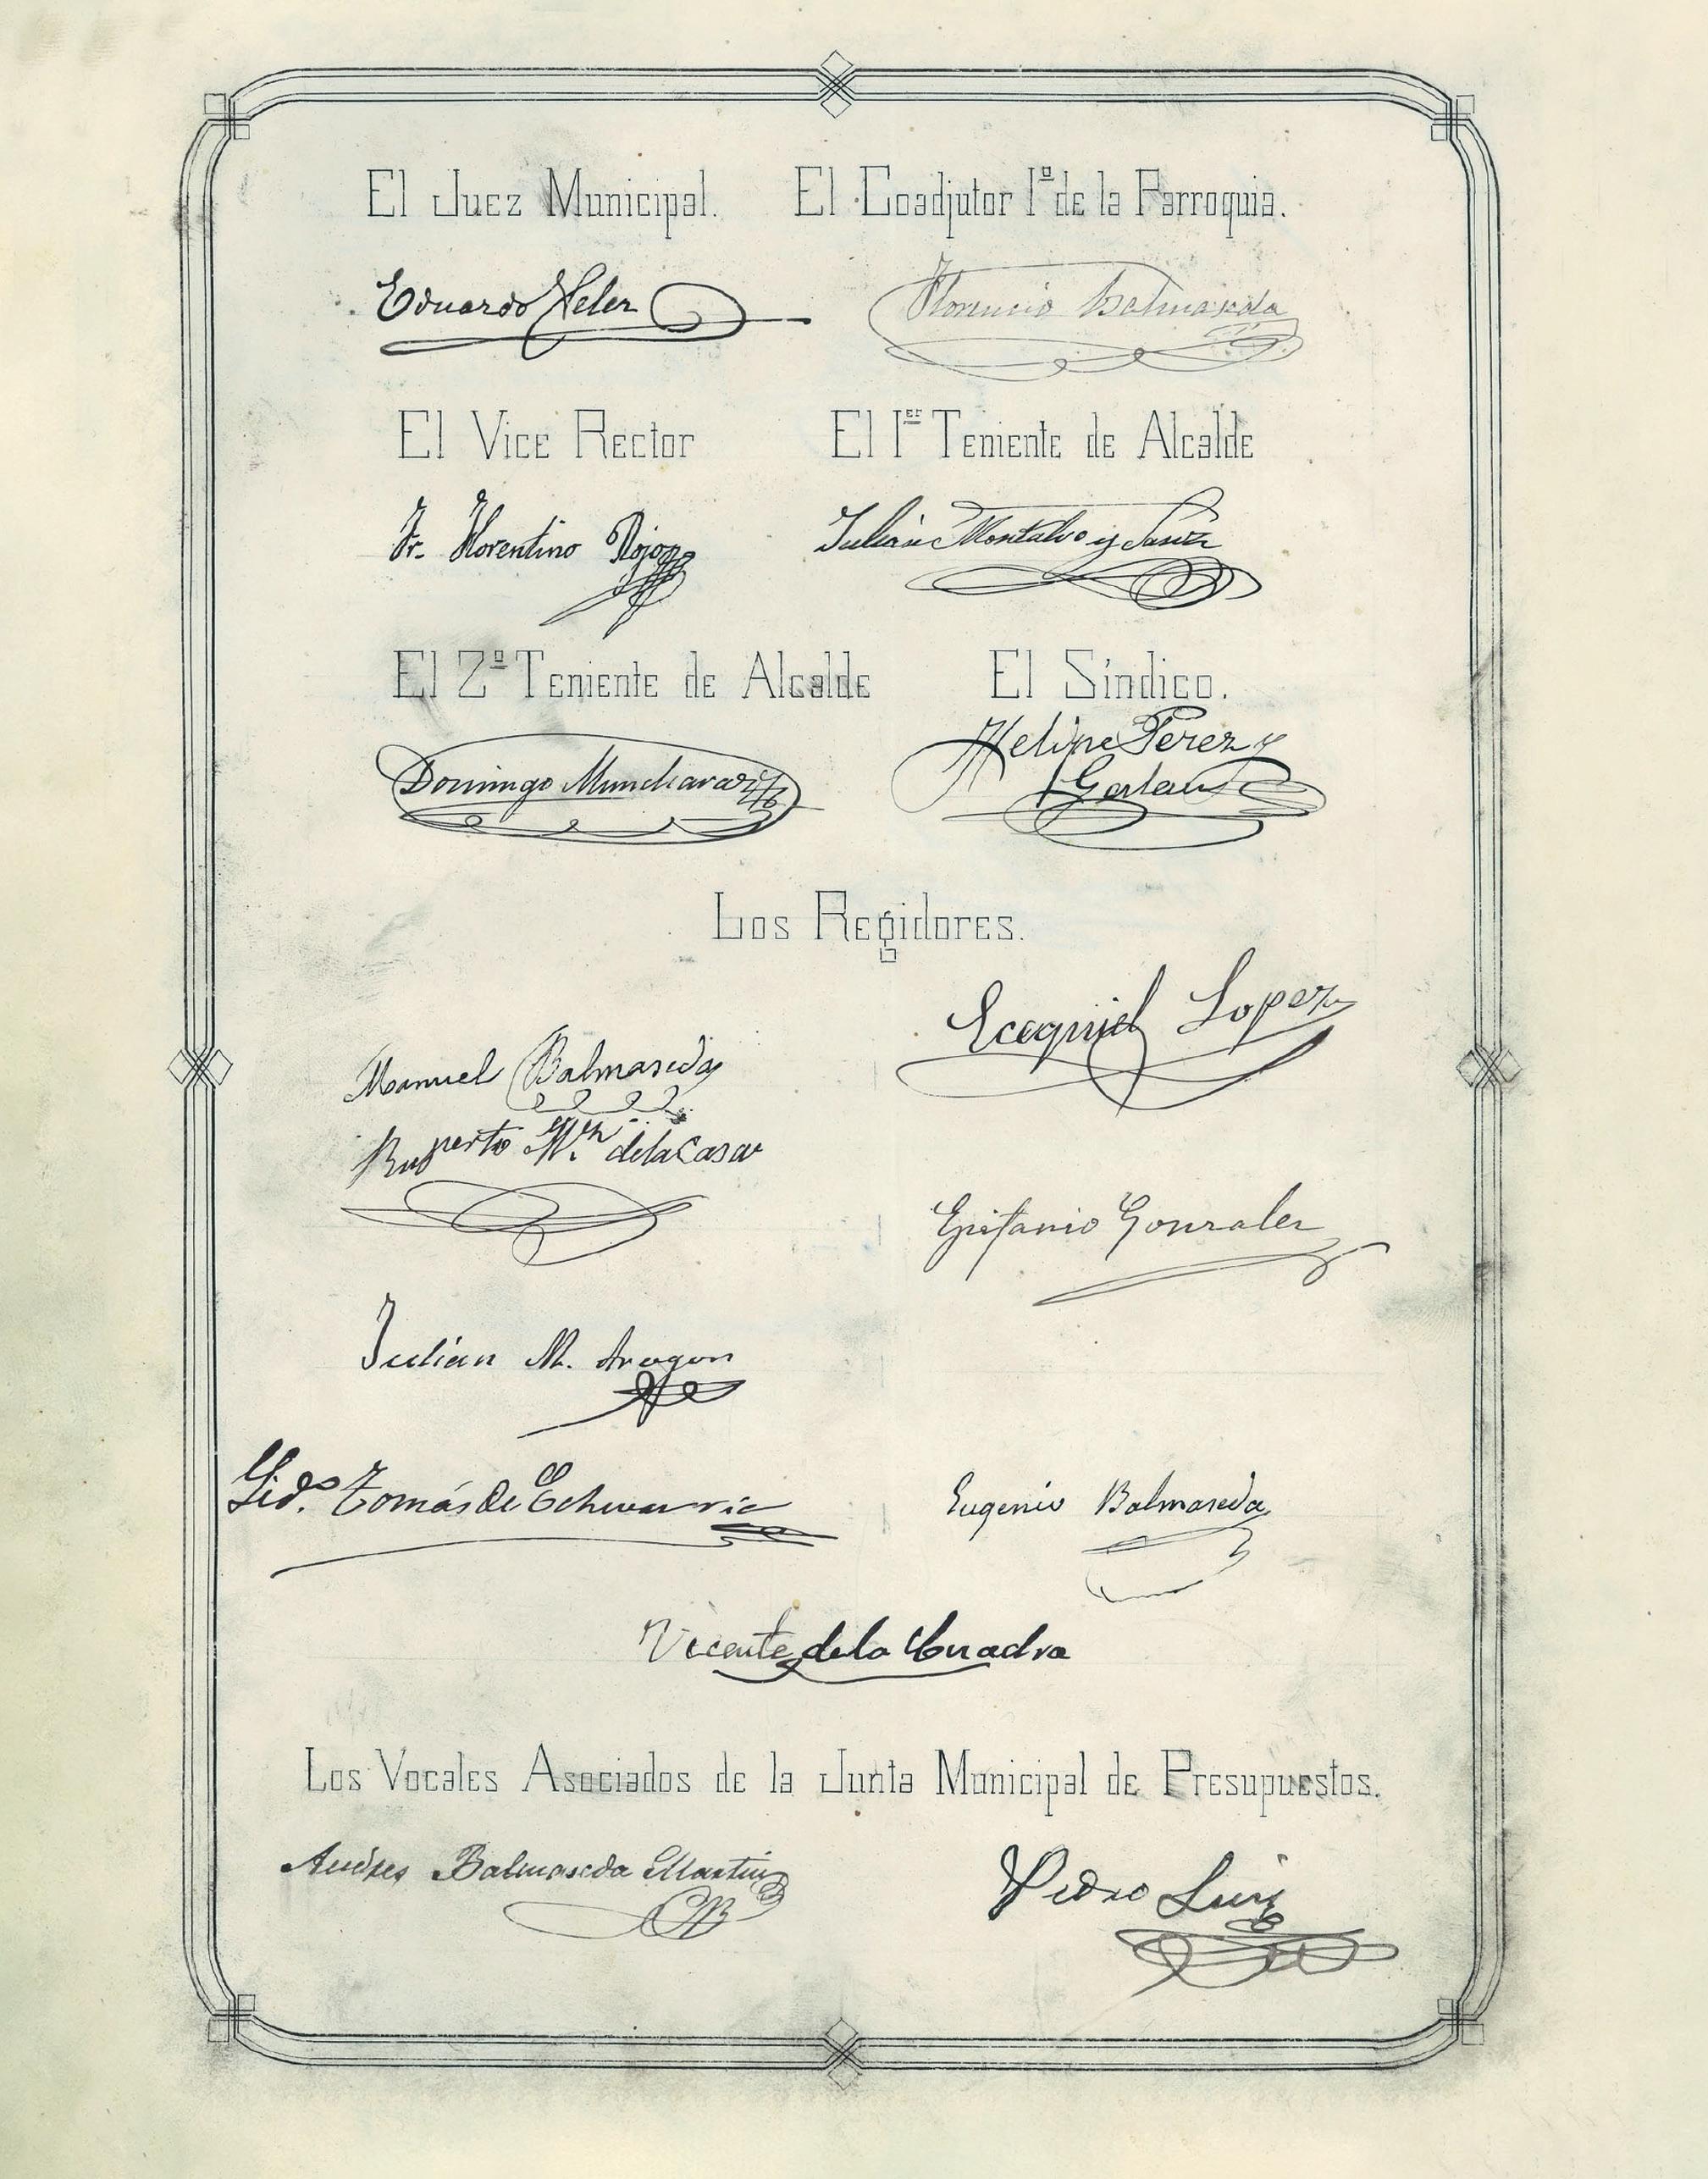 El Juez Municipal.
El Coadjutor 1º de la Parroquia.
Eduardo Xeler
Florencio Balmaseda
El Vice Rector
El 1er Teniente de Alcalde
Fr. Florentino Rojo
Julián Montalvo y
El 2º Teniente de Alcalde
El Síndico.
Domingo Muncharaz
Felipe Perez y
Los Regidores.
Ecequiel Lopez
Manuel Balmaseda
Ruperto Mn de la Casa
Epifanio Gonzalez
Julián M. Aragon
Lido. Tomás de Echevarria
Eugenio Balmaseda
Vicente de la Cuadra
Los Vocales Asociados de la Junta Municipal de Presupuestos.
Andres Balmaseda Martin
Pedro Luis